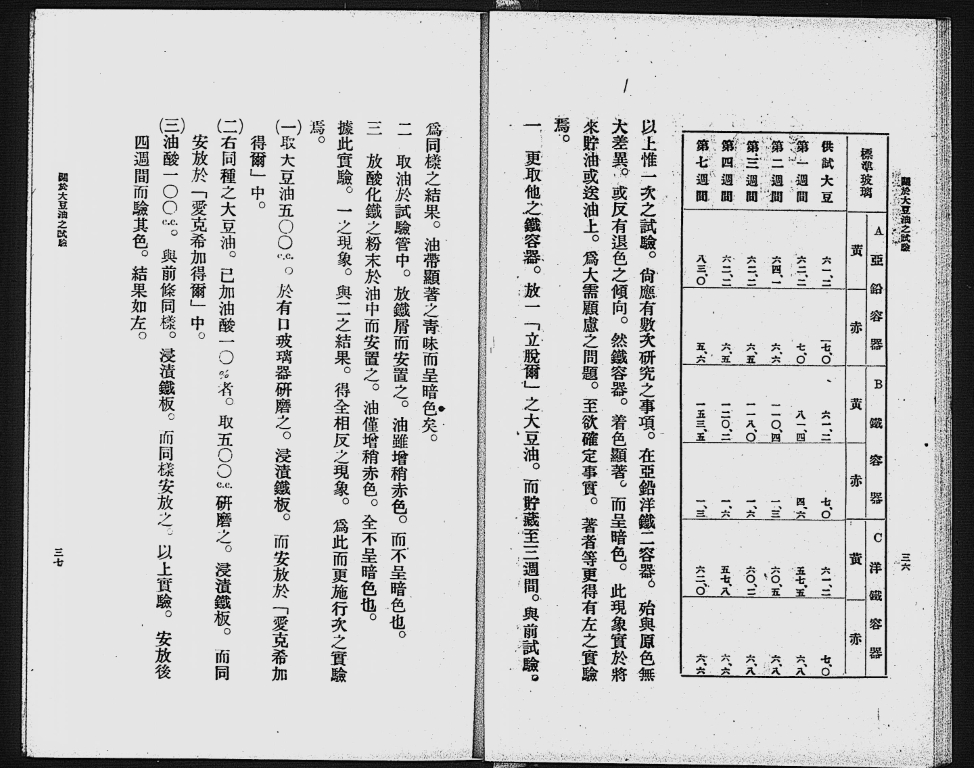 關於大豆油之試驗
三六
標準玻璃 A亞鉛容器 B鐵容器 C洋鐵容器
黃 赤 黃 赤 黃 赤
供試大豆 六一、二 七、〇 六一、二 七、〇 六一、二 七、〇
第一週間 六二、二 七、〇 八一、四 四、六 五七、五 六、八
第二週間 六四、一 六、六 一一〇、四 一、三 六〇、五 六、八
第三週間 六二、二 六、五 一一八、〇 一、六 六〇、二 六、八
第四週間 六二、二 六、五 一二〇、二 一、六 五七、八 六、六
第七週間 八三、〇 五、六 一五三、五 一、三 六二、〇 六、六
以上惟一次之試驗。尙應有數次研究之事項。在亞鉛洋鐵二容器。殆與原色無
大差異。或反有退色之傾向。然鐵容器。着色顯著。而呈暗色。此現象實於將
來貯油或送油上。爲大需顧慮之問題。至欲確定事實。著者等更得有左之實驗
焉。
一 更取他之鐵容器。放一「立脫爾」之大豆油。而貯藏至三週間。與前試驗。
爲同樣之結果。油帶顯著之靑味而呈暗色矣。
二 取油於試驗管中。放鐵屑而安置之。油雖增稍赤色。而不呈暗色也。
三 放酸化鐵之粉末於油中而安置之。油僅增稍赤色。全不呈暗色也。
據此實驗。一之現象。與二之結果。得全相反之現象。爲此而更施行次之實驗
焉。
(一)取大豆油五〇〇c.c.。於有口玻璃器研磨之。浸漬鐵板。而安放於「愛克希加
得爾」中。
(二)右同種之大豆油。已加油酸一〇%者。取五〇〇c.c.研磨之。浸漬鐵板。而同
安放於「愛克希加得爾」中。
(三)油酸一〇〇c.c.。與前條同樣。浸漬鐵板。而同樣安放之。以上實驗。安放後
四週間而驗其色。結果如左。
關於大豆油之試驗
三七